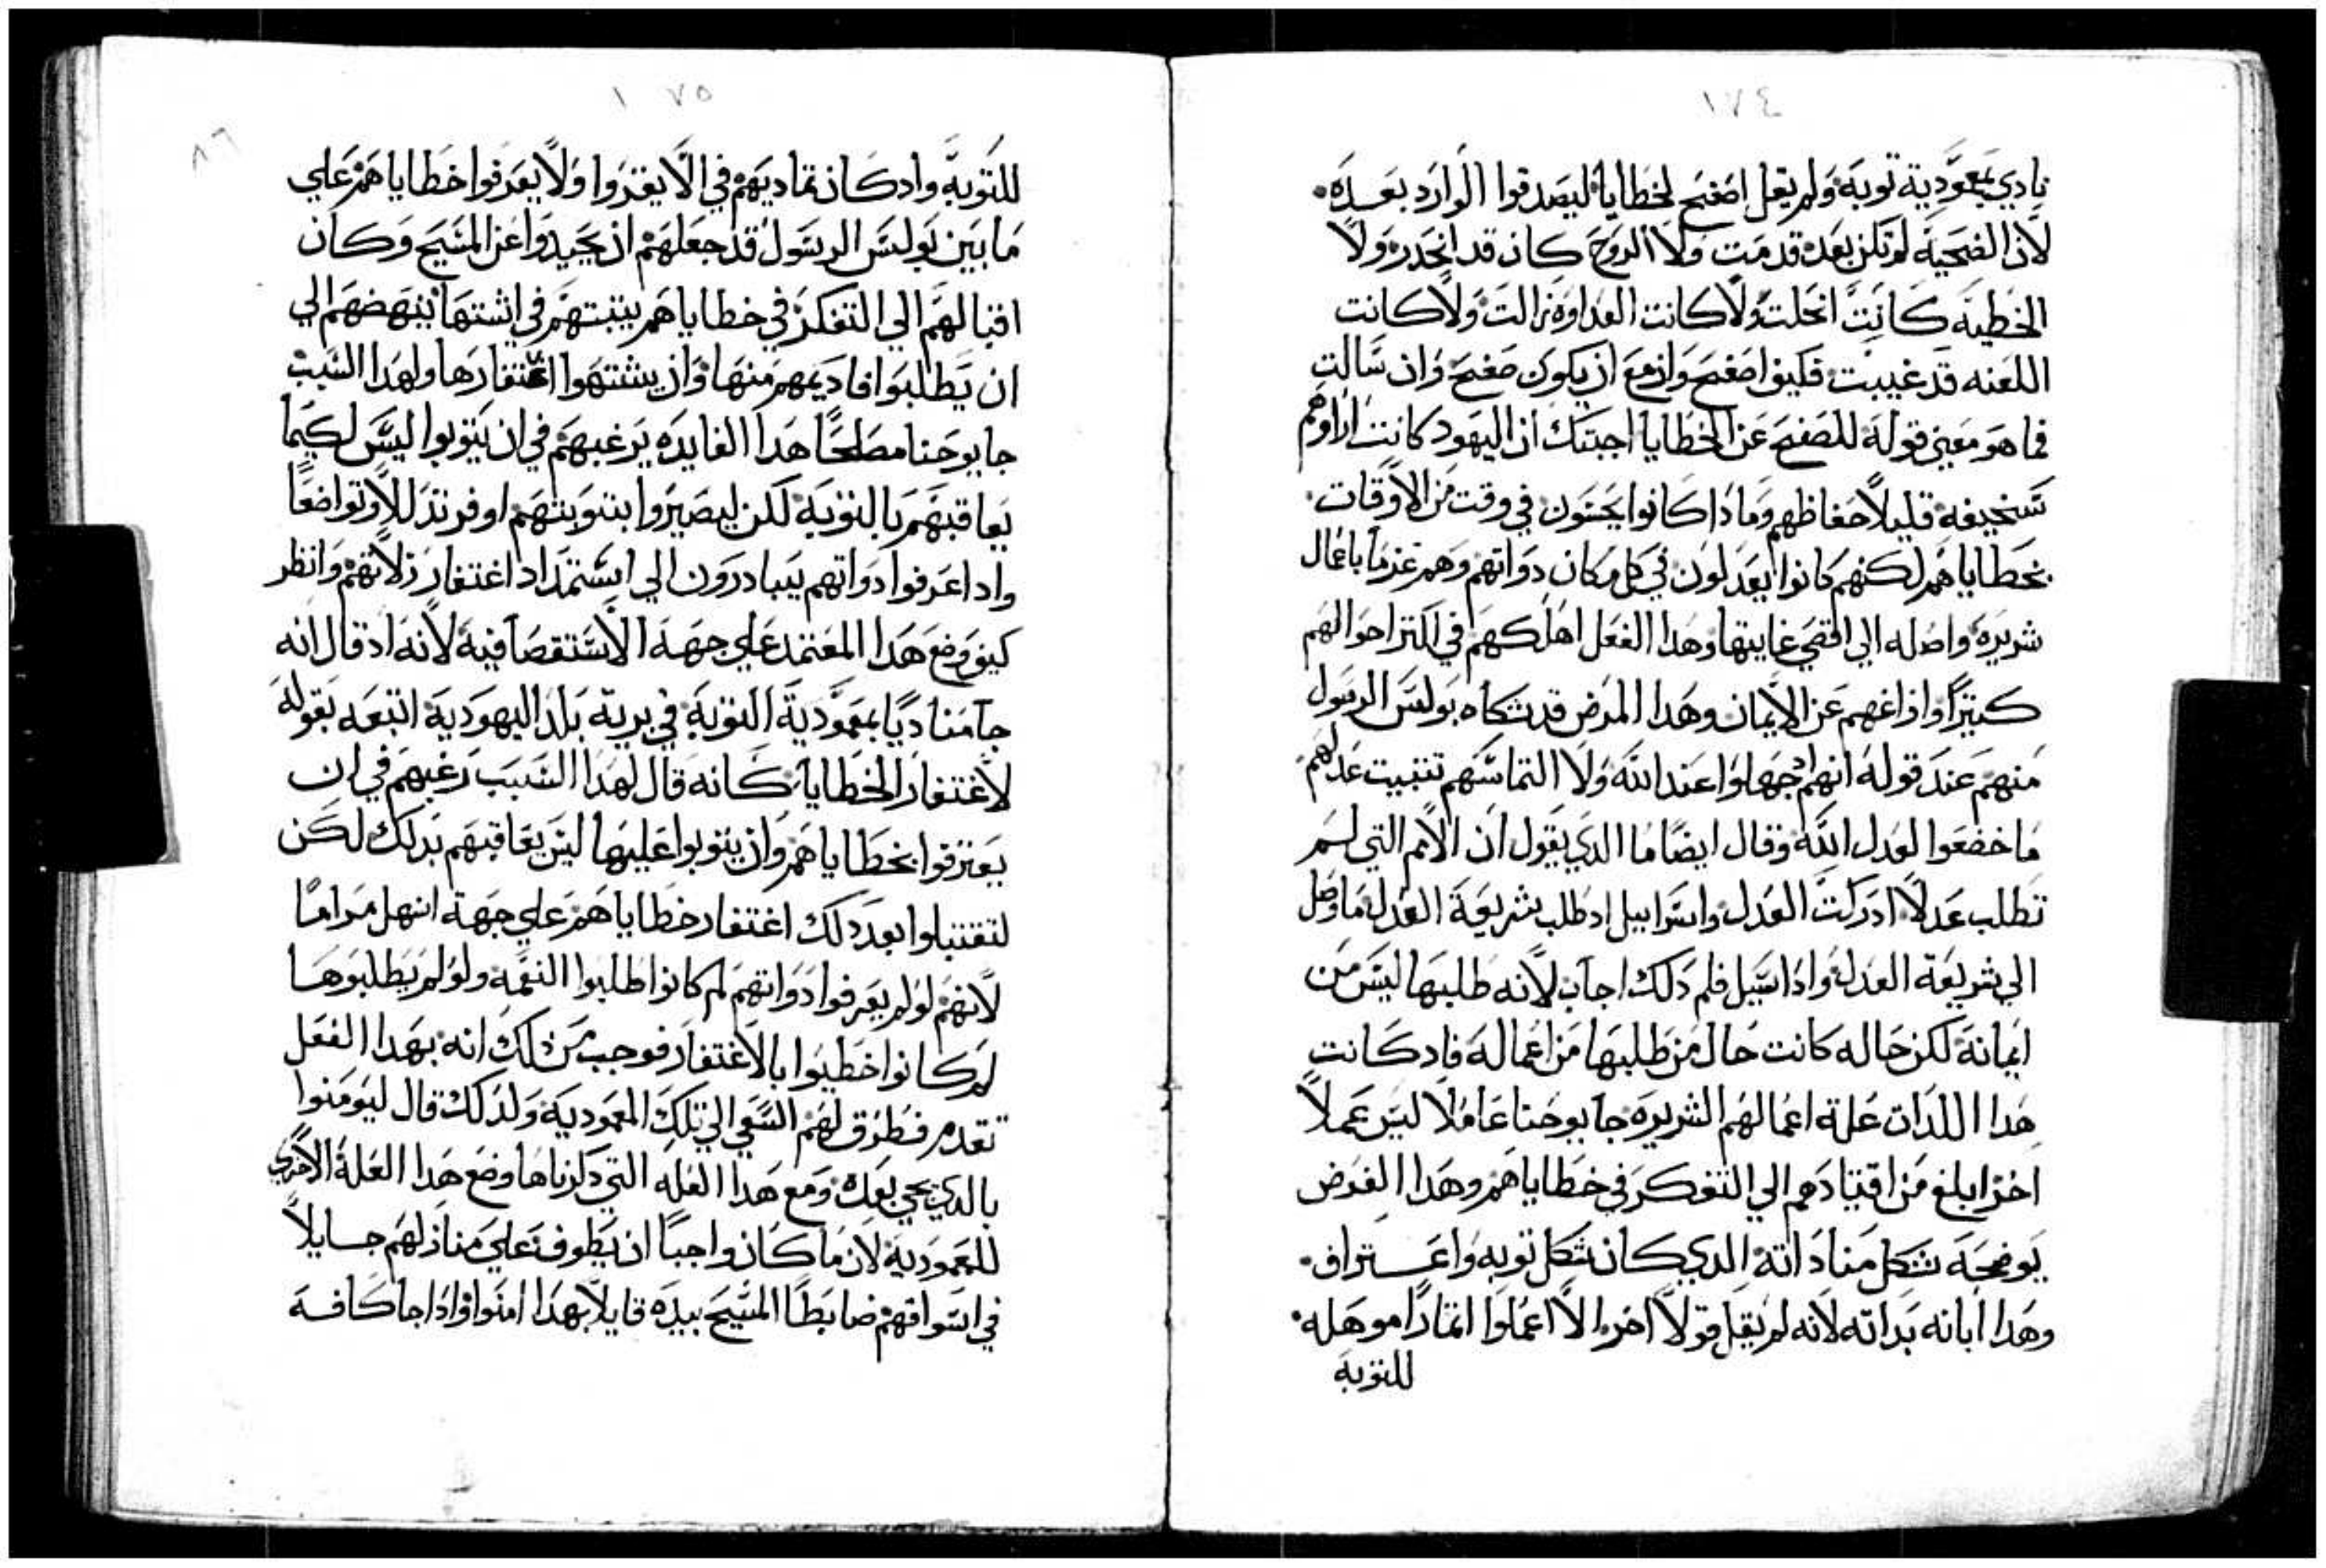 ١٧٤
نادي بمعمودية توبة ولم يقل اصفح لخطايا ليصدقوا الوارد بعده
لان الضحية لم تكن بعد قدمت ولا الروح كان قد انحدر ولا
الخطية كانت انحلت ولا كانت العداوه زالت ولا كانت
اللعنه قد غيبت فكيف اصفح وازمع ان يكون صفح وان سالت
فما هو معني قوله للصفح عن الخطايا اجبتك ان اليهود كانت اراوهم
سخيفه قليلا حفاظهم وما ذا كانوا يحسون في وقت من الاوقات
بخطاياهم لكنهم كانوا يعدلون في كل مكان دواتهم وهم غزما باعمال
شريره واصله الي اقصي غايتها وهدا الفعل اهلكهم في اكتر احوالهم
كتيرا وازاغهم عن الايمان وهدا المرض قد شكاه بولس الرسول
منهم عند قوله انهم اد جهلوا عند الله ولا التماسهم تتبيت عدلهم
ما خضعوا لعدل الله وقال ايضا ما الدي يقول ان الامم التي لم
تطلب عدلا ادركت العدل واسراييل اد طلب شريعة العدل ما وصل
الي شريعة العدل وادا سيل فلم دلك اجاب لانه طلبها ليس من
ايمانه لكن حاله كانت حال من طلبها من اعماله فاد كانت
هدا اللدات علة اعمالهم الشريره جا يوحنا عاملا ليس عملا
اخر ابلغ من اقتيادهم الي التفكر في خطاياهم وهدا الغرض
يوضحه شكل مناداته الدي كان شكل توبه واعتراف
وهدا ابانه بداته لانه لم يقل قولا اخر الا اعملوا اتمارا موهله
للتوبة
١٧٥
٨٦
للتوبة واد كان تماديهم في الا يقروا ولا يعرفوا خطاياهم علي
ما بين بولس الرسول قد جعلهم ان يحيدوا عن المسيح وكان
اقبالهم الي التفكر في خطاياهم يتبتهم في اشتها ينهضهم الي
ان يطلبوا فاديهم منها وان يشتهوا اغتفارها ولهدا السبب
جا يوحنا مصلحا هدا الفايده يرغبهم في ان يتوبوا ليس لكيما
يعاقبهم بالتوبة لكن ليصيروا بتوبتهم اوفر تذللا وتواضعا
وادا عرفوا دواتهم يبادرون الي استمداد اغتفار زلاتهم وانظر
كيف وضع هدا المعتمد علي جهة الاستقصا فيه لانه اد قال انه
جا مناديا بمعمودية التوبة في برية بلد اليهودية اتبعه بقوله
لاغتفار الخطايا كانه قال لهدا السبب رغبهم في ان
يعترفوا بخطاياهم وان يتوبوا عليها ليس يعاقبهم بدلك لكن
لتقتبلوا بعد دلك اغتفار خطاياهم علي جهة اسهل مراما
لانهم لو لم يعرفوا دواتهم لم كانوا طلبوا النعمه ولو لم يطلبوها
لم كانوا خطيوا بالاغتفار فوجب من دلك انه بهدا الفعل
تقدم فطرق لهم السعي الي تلك المعمودية ولدلك قال ليومنوا
بالدي يجي بعده ومع هدا العله التي دكرناها وضع هدا العلة الاخري
للمعمودية لان ما كان واجبا ان يطوف علي منازلهم جايلا
في اسواقهم ضابطا المسيح بيده قايلا بهدا امنوا وادا جا كافة